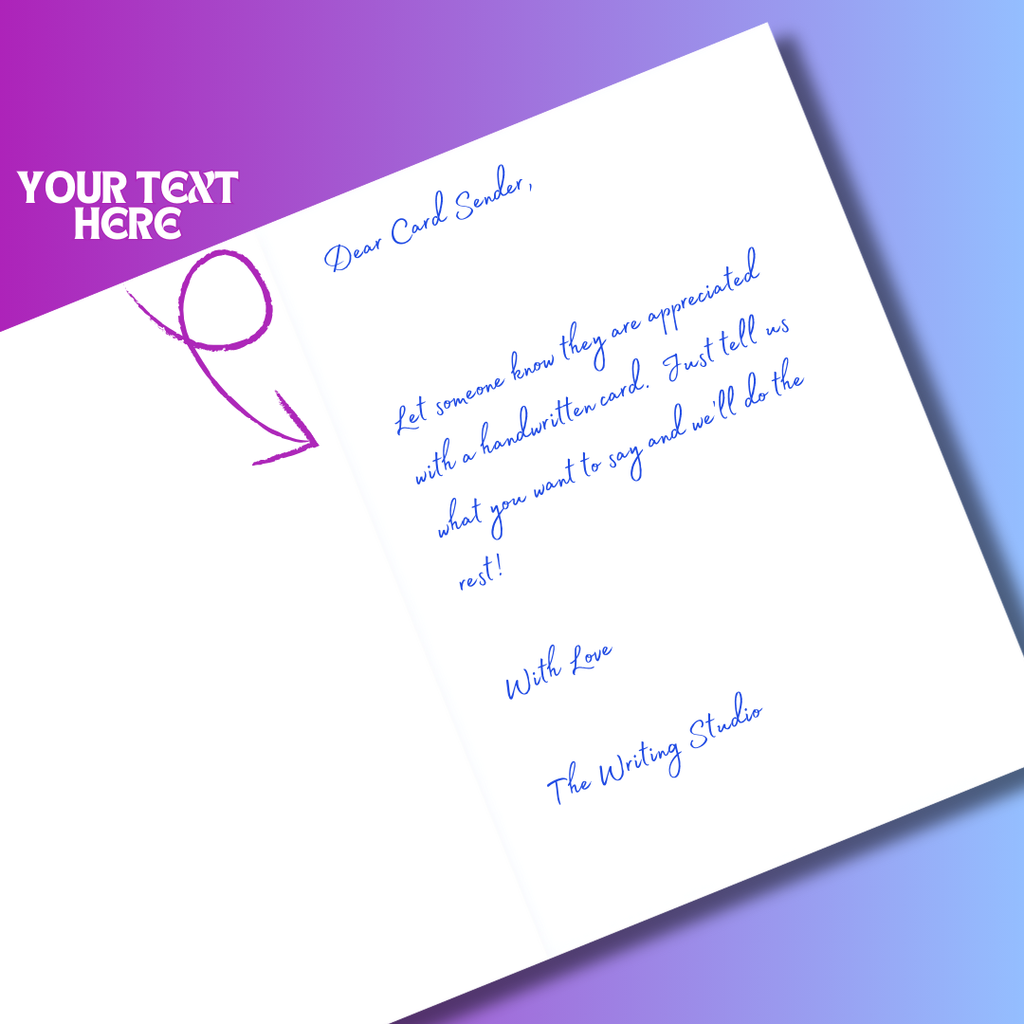 YOUR TEXT
HERE
Dear Card Sender,
Let someone know they are appreciated
with a handwritten card. Just tell us
what you want to say and we'll do the
rest!
With Love
The Writing Studio